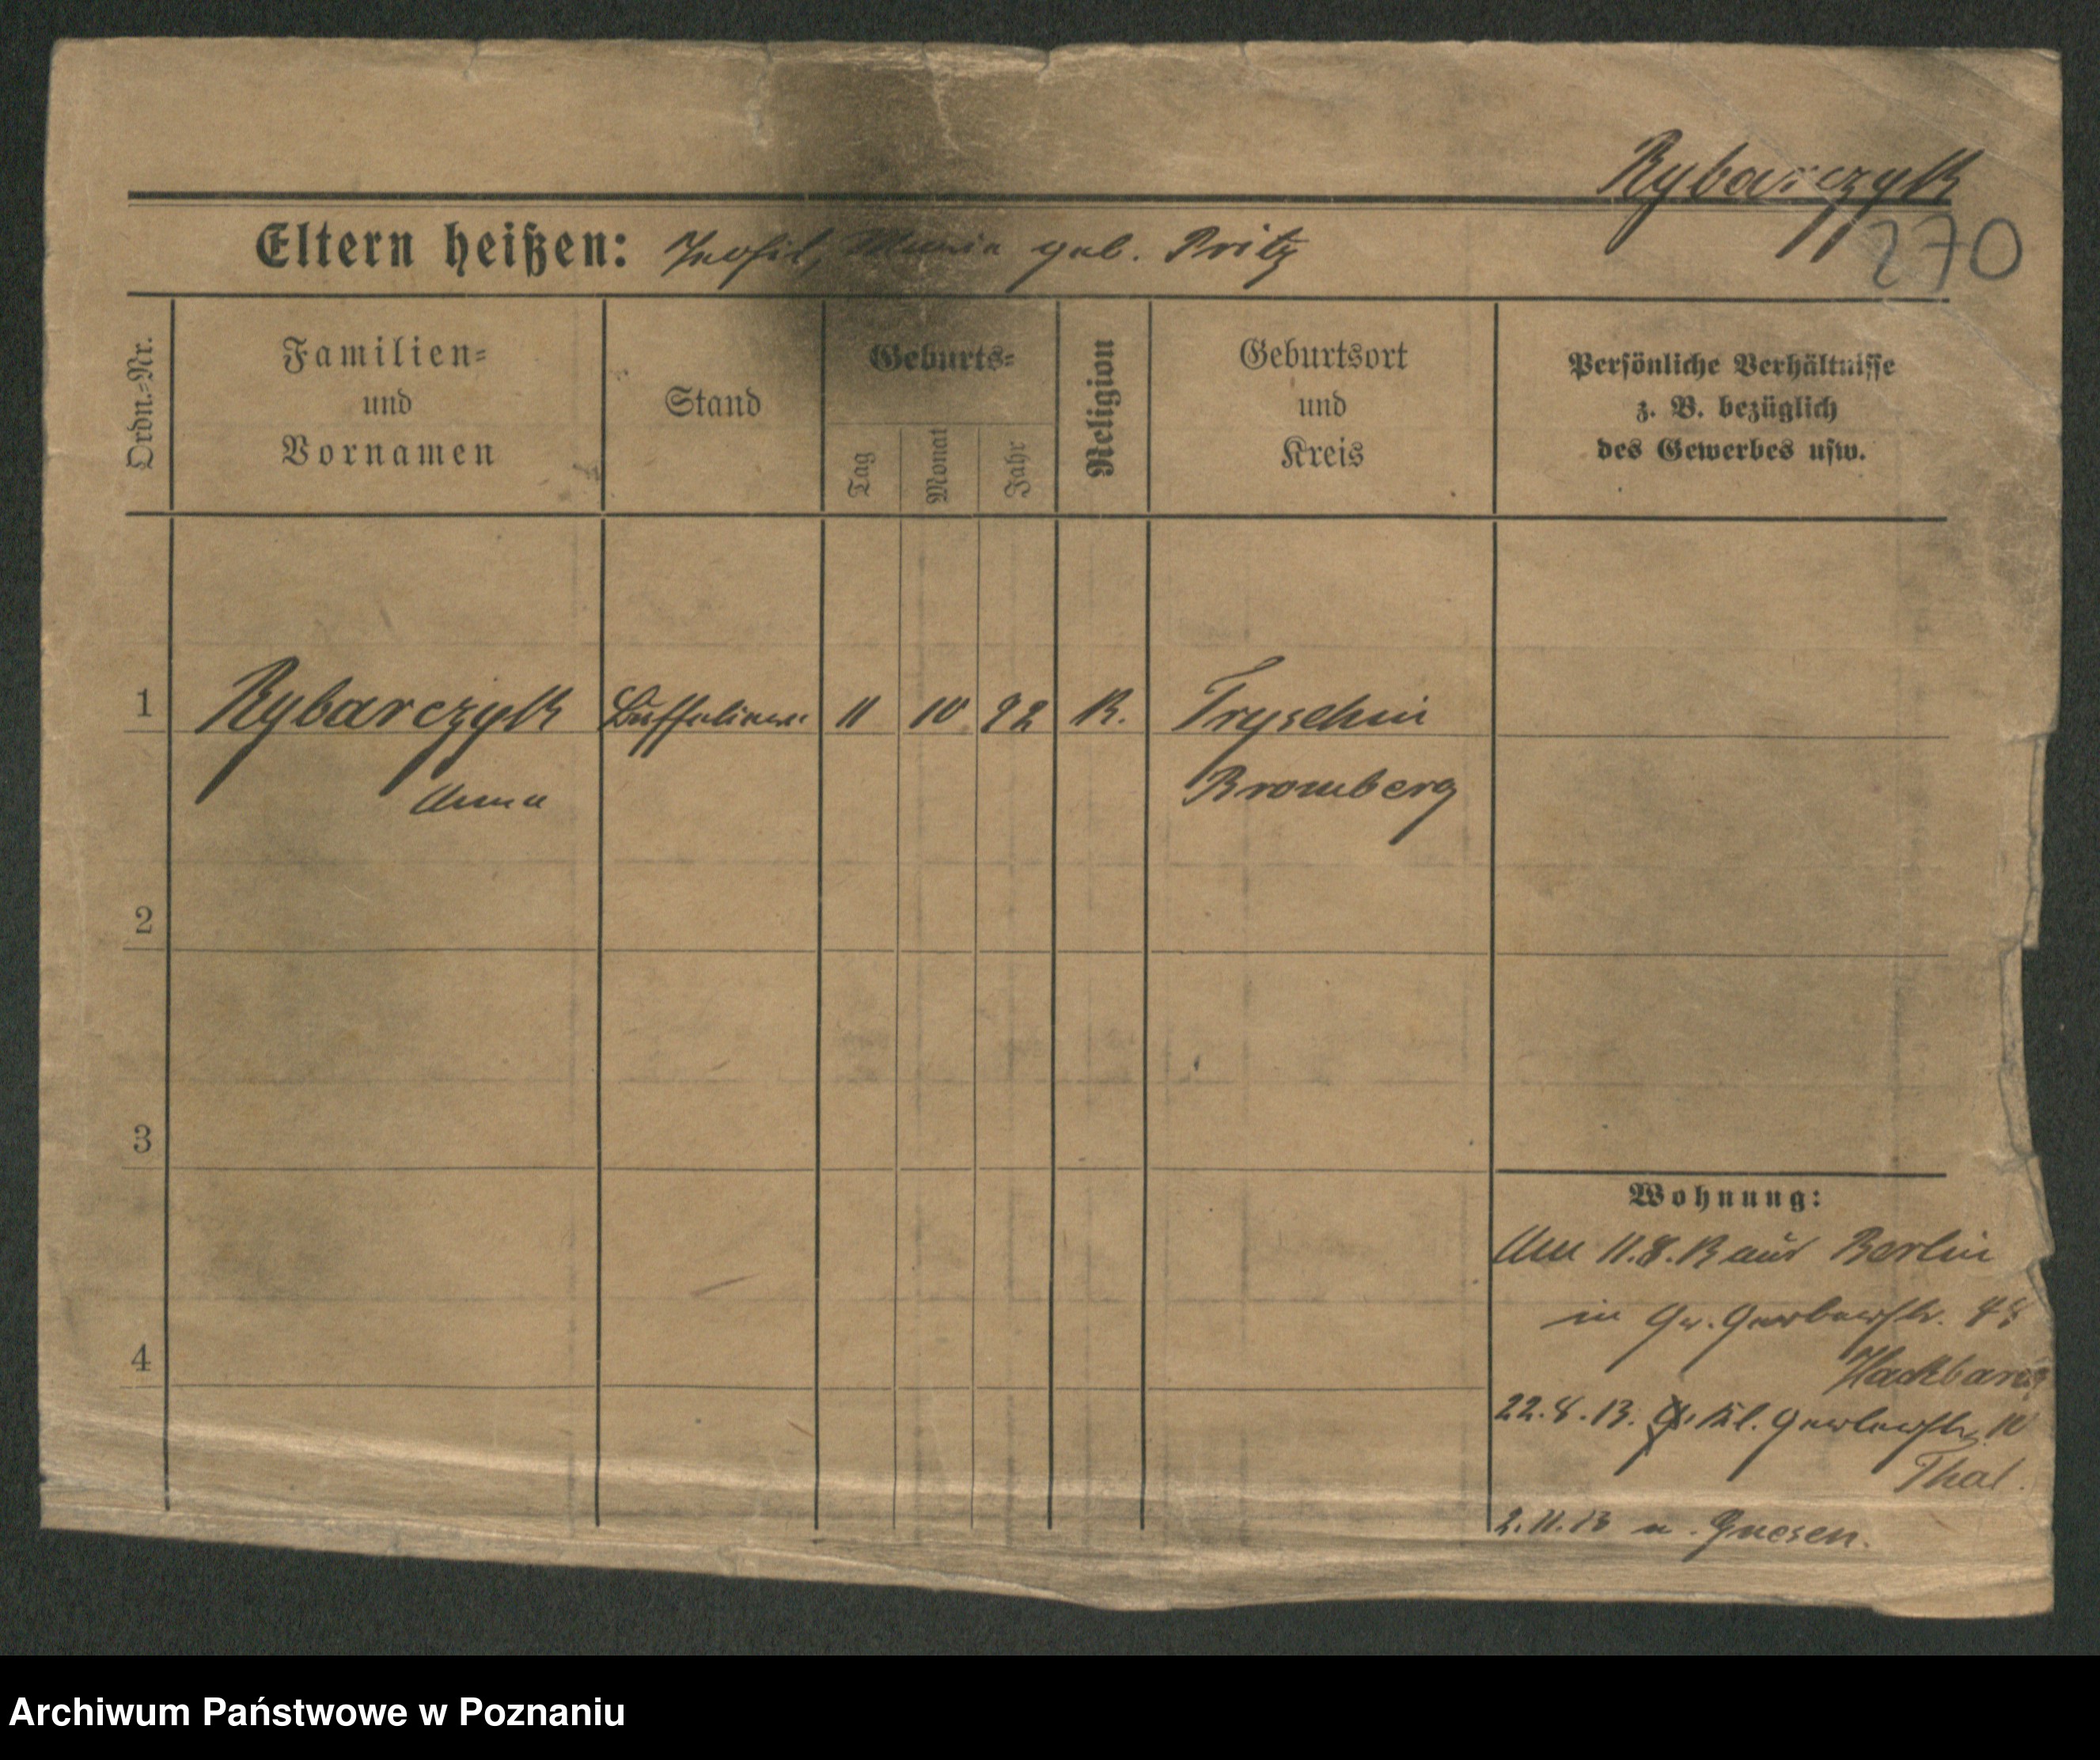 Rybarczyk
270
Eltern heißen: Teofil, Maria geb. Pritz
Ordn.=Nr.
Familien=
und
Vornamen
Stand
Geburts=
Tag
Monat
Jahr
Religion
Geburtsort
und
Kreis
Persönliche Verhältnisse
z. B. bezüglich
des Gewerbes usw.
1 Rybarczyk 11 10 92 K. Tryschin
Anna Bromberg
2
3
Wohnung:
11.8.13 aus Berlin
in Gr. Gerberstr. 48
4
Hackbarth
22.8.13. Kl. Gerberstr. 10
Thal.
2.11.13 n. Gnesen.
Archiwum Państwowe w Poznaniu